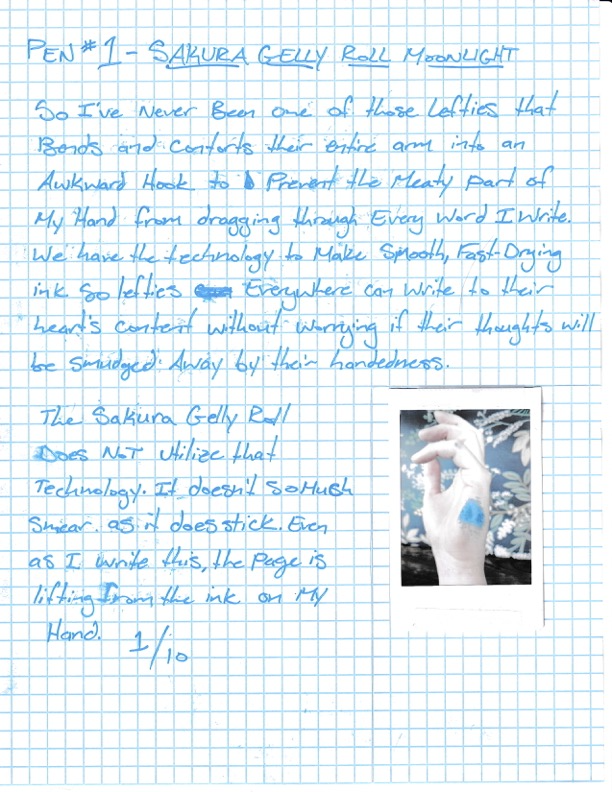 PEN #1 - SAKURA GELLY ROLL MOONLIGHT
So I've Never Been one of those Lefties that
Bends and Contorts their entire arm into an
Awkward Hook to Prevent the Meaty part of
My Hand from dragging through Every Word I Write.
We have the technology to Make Smooth, Fast-Drying
ink so lefties Everywhere can write to their
heart's content without worrying if their thoughts will
be smudged Away by their handedness.
The Sakura Gelly Roll
Does NOT utilize that
Technology. It doesn't so Much
Smear as it does stick. Even
as I write this, the page is
lifting from the ink on My
Hand. 1/10